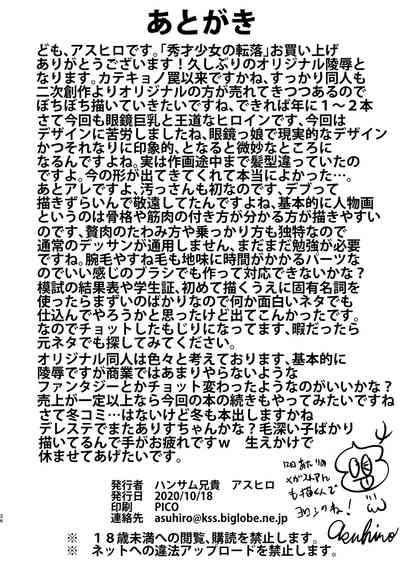 あとがき
ども、アスヒロです。「秀才少女の転落」お買い上げ
ありがとうございます！久しぶりのオリジナル陵辱と
なります。カテキョノ罠以来ですかね、すっかり同人も
二次創作よりオリジナルの方が売れてきつつあるので
ぼちぼち描いていきたいですね、できれば年に１～２本
さて今回も眼鏡巨乳と王道なヒロインです、今回は
デザインに苦労しましたね、眼鏡っ娘で現実的なデザイン
かつそれなりに印象的、となると微妙なところに
なるんですよね。実は作画途中まで髪型違っていたの
ですよ。今の形が出てきてくれて本当によかった…。
あとアレですよ、汚っさんも初なのです、デブって
描きずらいんで敬遠してたんですよね、基本的に人物画
というのは骨格や筋肉の付き方が分かる方が描きやすい
のです、贅肉のたわみ方や乗っかり方も独特なので
通常のデッサンが通用しません、まだまだ勉強が必要
ですね。腕毛やすね毛も地味に時間がかかるパーツな
のでいい感じのブラシでも作って対応できないかな？
模試の結果表や学生証、初めて描くうえに固有名詞を
使ったらまずいのばかりなので何か面白いネタでも
仕込んでやろうかと思ったけど出てこんかったです。
なのでチョットしたもじりになってます、暇だったら
元ネタでも探してみてください。
オリジナル同人は色々と考えております、基本的に
陵辱ですが商業ではあまりやらないような
ファンタジーとかチョット変わったようなのがいいかな？
売上が一定以上なら今回の本の続きもやってみたいですね
さて冬コミ…はないけど冬も本出しますかね
デレステでまたありすちゃんかな？毛深い子ばかり
描いてるんで手がお疲れですｗ　生えかけで
休ませてあげたいです。
発行者　ハンサム兄貴　アスヒロ
発行日　2020/10/18
印刷　PICO
連絡先　asuhiro@kss.biglobe.ne.jp
asuhiro
※　１８歳未満への閲覧、購読を禁止します。
※　ネットへの違法アップロードを禁止します。